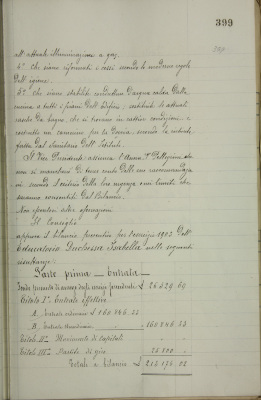 399
all'attuale illuminazione a gas.
4° che siano riformati i cessi secondo le moderne regole
dell'igiene.
5° che siano stabilite conduttura d'acqua calda dalla
cucina a tutti i piani dell'edificio, sostituite le attuali
vasche da bagno, che si trovano in cattive condizioni, e
costruito un camerino per la doccia, secondo le
fatte dal Sanitario dell'Istituto.
Il Vice Presidente assicura l'Avv. Pellegrini che
non si mancherà di tener conto delle sue raccomandazio
ni, secondo l'ordine della loro urgenza, nei limiti che
saranno consentiti dal bilancio.
Non essendovi altre osservazioni
Il Consiglio
approva il bilancio preventivo per l'esercizio 1903 dell'
Educatorio Duchessa Isabella nelle seguenti
risultanze:
Parte prima - Entrata -
Fondo presunto di avanzo degli esercizi precedenti £ 26529 69
Titolo I° Entrate effettive
A. Entrate ordinarie £ 160846 33
B. Entrate straordinarie " 160846 33
Titolo II° Movimento di Capitali
Titolo III° Partite di giro
Totale a bilancio £